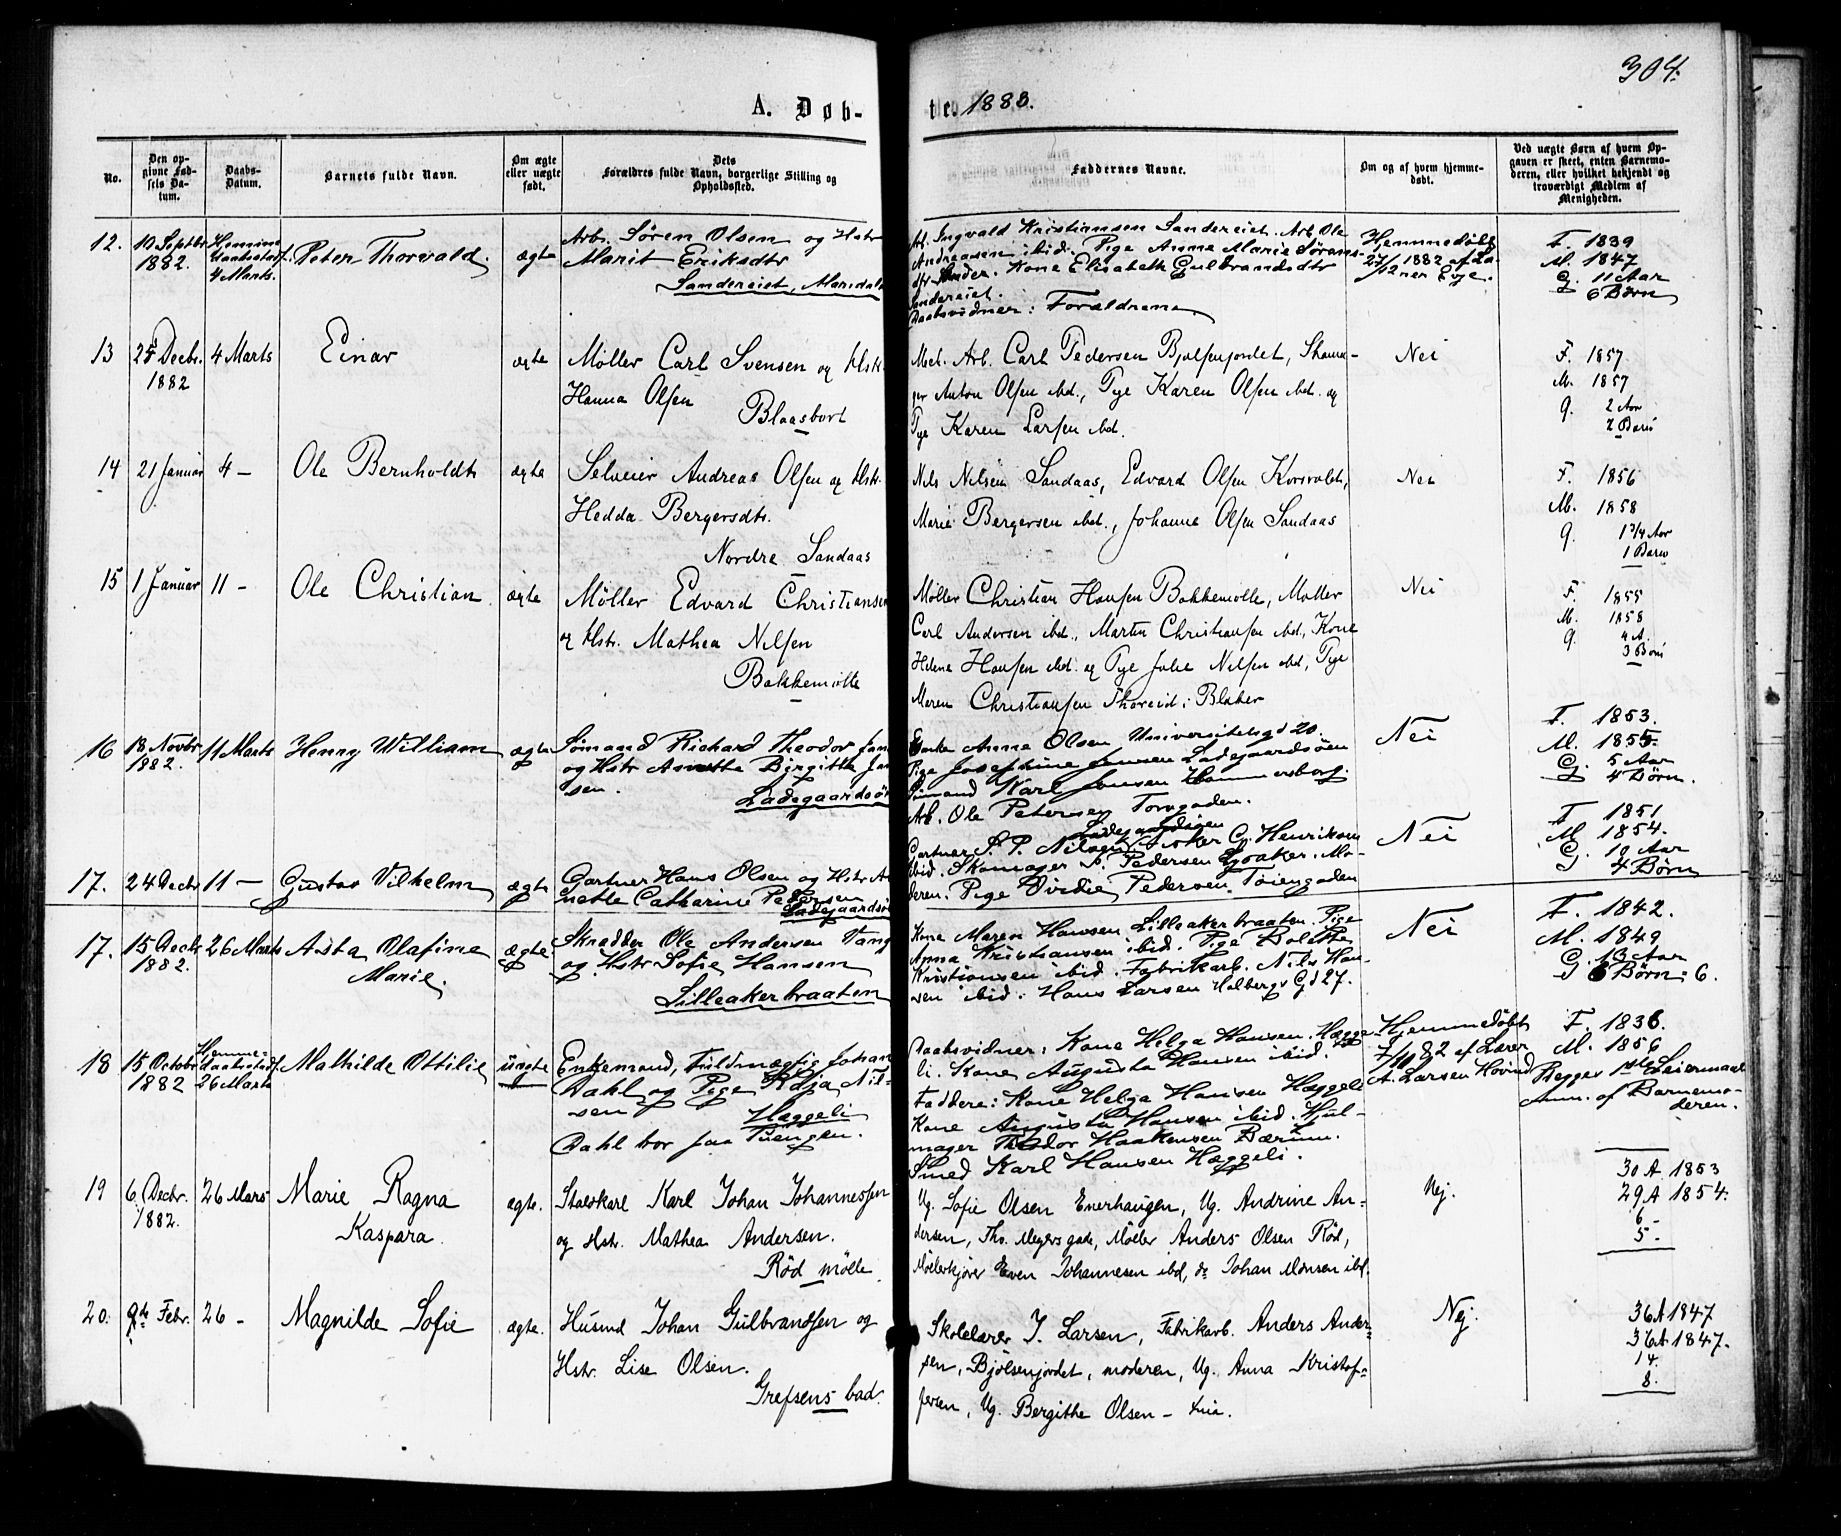 304.
A. Døb-
te. 1883.
No.
Den opgivne Fødsels Datum.
Daabs-Datum.
Barnets fulde Navn.
Om ægte eller uægte født.
Dets Forældres fulde Navn, borgerlige Stilling og Opholdssted.
Faddernes Navne.
Om og af hvem hjemmedøbt.
Ved uægte Børn af hvem Opgaven er skeet, enten Barnemoderen, eller hvilket bekjendt og troværdigt Medlem af Menigheden.
12. 10 Septbr 1882. 4 Marts. Peter Thorvald. ægte
Arb. Søren Olsen og Hstr
Marit Eriksdtr
Sandereiet, Maridal
Arb. Ingvald Kristiansen Sandereiet. Arb. Ole
Andreassen ibid. Pige Anne Marie Sørens-
dtr Sander. Kone Elisabeth Gulbrandsdtr
Sandereiet.
Daabsvidner: Forældrene
Hjemmedøbt
27/12 1882 af Læ-
rer Evje.
F. 1839
M. 1847
G. 11 Aar
6 Børn
13 25 Decbr. 1882 4 Marts Einar ægte
Møller Carl Svensen og Hstr.
Hanna Olsen
Blaasbort
Med. Arb. Carl Pedersen Bjølsenjordet,
Anton Olsen ibd., Pge Karen Olsen ibd. og
Pge Karen Larsen ibd.
Nei
F. 1857
M. 1857
G. 2 Aar
2 Børn
14 21 Januar 4 - Ole Bernholdt ægte
Selveier Andreas Olsen og Hstr.
Hedda Bergersdtr.
Nordre Sandaas
Nels Nelsen Sandaas, Edvard Olsen Korsvoldt,
Marie Bergersen ibd., Johanne Olsen Sandaas
Nei
F. 1856
M. 1858
G. 1 3/4 Aar
1 Barn
15 1 Januar 11 - Ole Christian ægte
Møller Edvard Christiansen
og Hstr. Mathea Nilsen
Bakkemølle
Møller Christian Hansen Bakkemølle, Møller
Carl Andersen ibd., Martin Christiansen ibd., Kone
Helene Hansen ibd. og Pge Julie Nilsen ibd., Pge
Maren Christiansen i Blaker
Nei
F. 1855
M. 1858
G. 4 A.
3 Børn
16 18 Novbr 1882. 11 Marts Henry William ægte
Sømand Richard Theodor Jan
og Hstr Anette Birgitte Jan
sen.
Ladegaardsø
Enke Anna Olsen Universitetsgd 20
Pige Josephine Jensen Ladegaardsøen
Sømand Karl Jensen Hammersborg.
Arb. Ole Petersen Torvgaden.
Nei
F. 1853.
M. 1855.
G. 5 Aar
4 Børn.
17. 24 Decbr 11 - Gustav Vilhelm ægte
Gartner Hans Olsen og Hstr A
nette Cathrine Pedersen
Ladegaardsø
Ladegaardsøen
Gartner P. P. Nilsen Fisker G. Henriksen
ibid. Skomager P. Pedersen Goaker. Mo-
deren. Pige Ovidie Pedersen Tøiengaden
Nei
F. 1851
M. 1854.
G. 10 Aar
4 Børn
17. 15 Decbr 1882. 26 Marts Asta Olafine Marie. ægte
Skrædder Ole Andersen Vang
og Hstr Sofie Hansen
Lilleakerbraaten
Kone Maren Hansen Lilleakerbraaten. Pige
Anna Kristiansen ibid. Pige Bolette
Kristiansen ibid. Fabrikarb. Nils Han-
sen ibid. Hans Larsen Holbergs Gd 27.
Nei
F. 1842.
M. 1849
G. 13 Aar
6 Børn: 6.
18 15 Octobr 1882 26 Marts Mathilde Ottilie uægte
Enkemand, Fuldmægtig Johan
Dahl og Pige Kaja Nil-
sen
Hæggeli
Dahl bor paa Tuengen.
Daabsvidner: Kone Helga Hansen Hægge-
li. Kone Augusta Hansen ibid.
Faddere: Kone Helga Hansen Hæggeli
Kone Augusta Hansen ibid. Hjul-
mager Theodor Haakensen Bærum.
Smed Karl Hansen Hæggeli.
Hjemmedøbt
af Lærer
A. Larsen Hovind
F. 1836.
M. 1856
Begges 1ste Leiermaal
Anm. af Barnemo-
deren.
19 6 Decbr. 1882. 26 Mars Marie Ragna Kaspara ægte.
Staldkarl Karl Johan Johannessen
og Hstr. Mathea Andersen.
Rød mølle
Ug. Sofie Olsen Enerhaugen, Ug. Andrine An-
dersen, Ths. Meyers gade, Møller Anders Olsen Rød,
Møllerkjører Even Johannesen ibd, do Johan Monsen ibd.
Nej.
30 A. 1853
29 A 1854.
6 -
5 -
20. 9de Febr. 26 - Magnilde Sofie ægte.
Husmd Johan Gulbrandsen og
Hstr. Lise Olsen.
Grefsens bad.
Skolelærer J. Larsen, Fabrikarb. Anders Ander-
sen, Bjølsenjordet, moderen, Ug. Anna Kristof-
fersen, Ug. Bergithe Olsen -
Nej.
36 A 1847
36 A 1847.
14.
8.